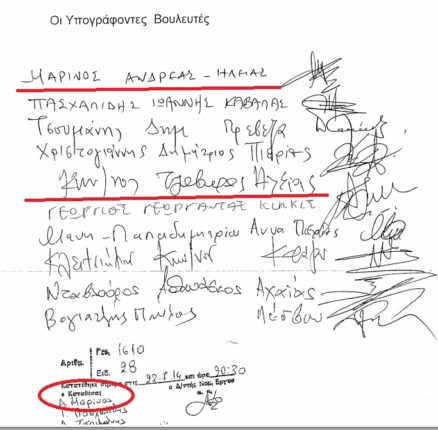 Οι Υπογράφοντες Βουλευτές
ΜΑΡΙΝΟΣ ΑΝΔΡΕΑΣ - ΗΛΕΙΑΣ
ΠΑΣΧΑΛΙΔΗΣ ΙΩΑΝΝΗΣ ΚΑΒΑΛΑΣ
Τσουμάνης Δημ Πρέβεζα
Χριστογιάννης Δημήτριος Πιερίας
Κων/νος Τζαβάρας Ηλείας
ΓΕΩΡΓΙΟΣ ΓΕΩΡΓΑΝΤΑΣ ΚΙΛΚΙΣ
Μάνη - Παπαδημητρίου Άννα Πιερίας
Κων/νου
Νταβλούρος Αθανάσιος Αχαΐας
Βογιατζής Παύλος Λέσβου
Αριθμ. Γεν. 1610
Ειδ. 28
Κατατέθηκε σήμερα στις 22.8.14 και ώρα 20:30
ο Καταθέσας ο Δ/ντής Νομ. Έργου
Α. Μαρίνος